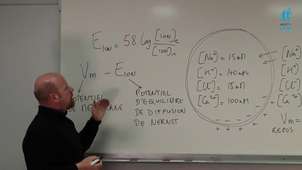 E ION = 58 log [ION]e / [ION]i
Vm - EION
POTENTIEL
DE MEMBRANE
POTENTIEL
D'EQUILIBRE
DE DIFFUSION
DE NERNST
[Na+] = 15 mM
[K+] = 140 mM
[Cl-] = 15 mM
[Ca2+] = 100 nM
[Na+]
[K+]
[Cl-]
[Ca2+]
Vm =
REPOS